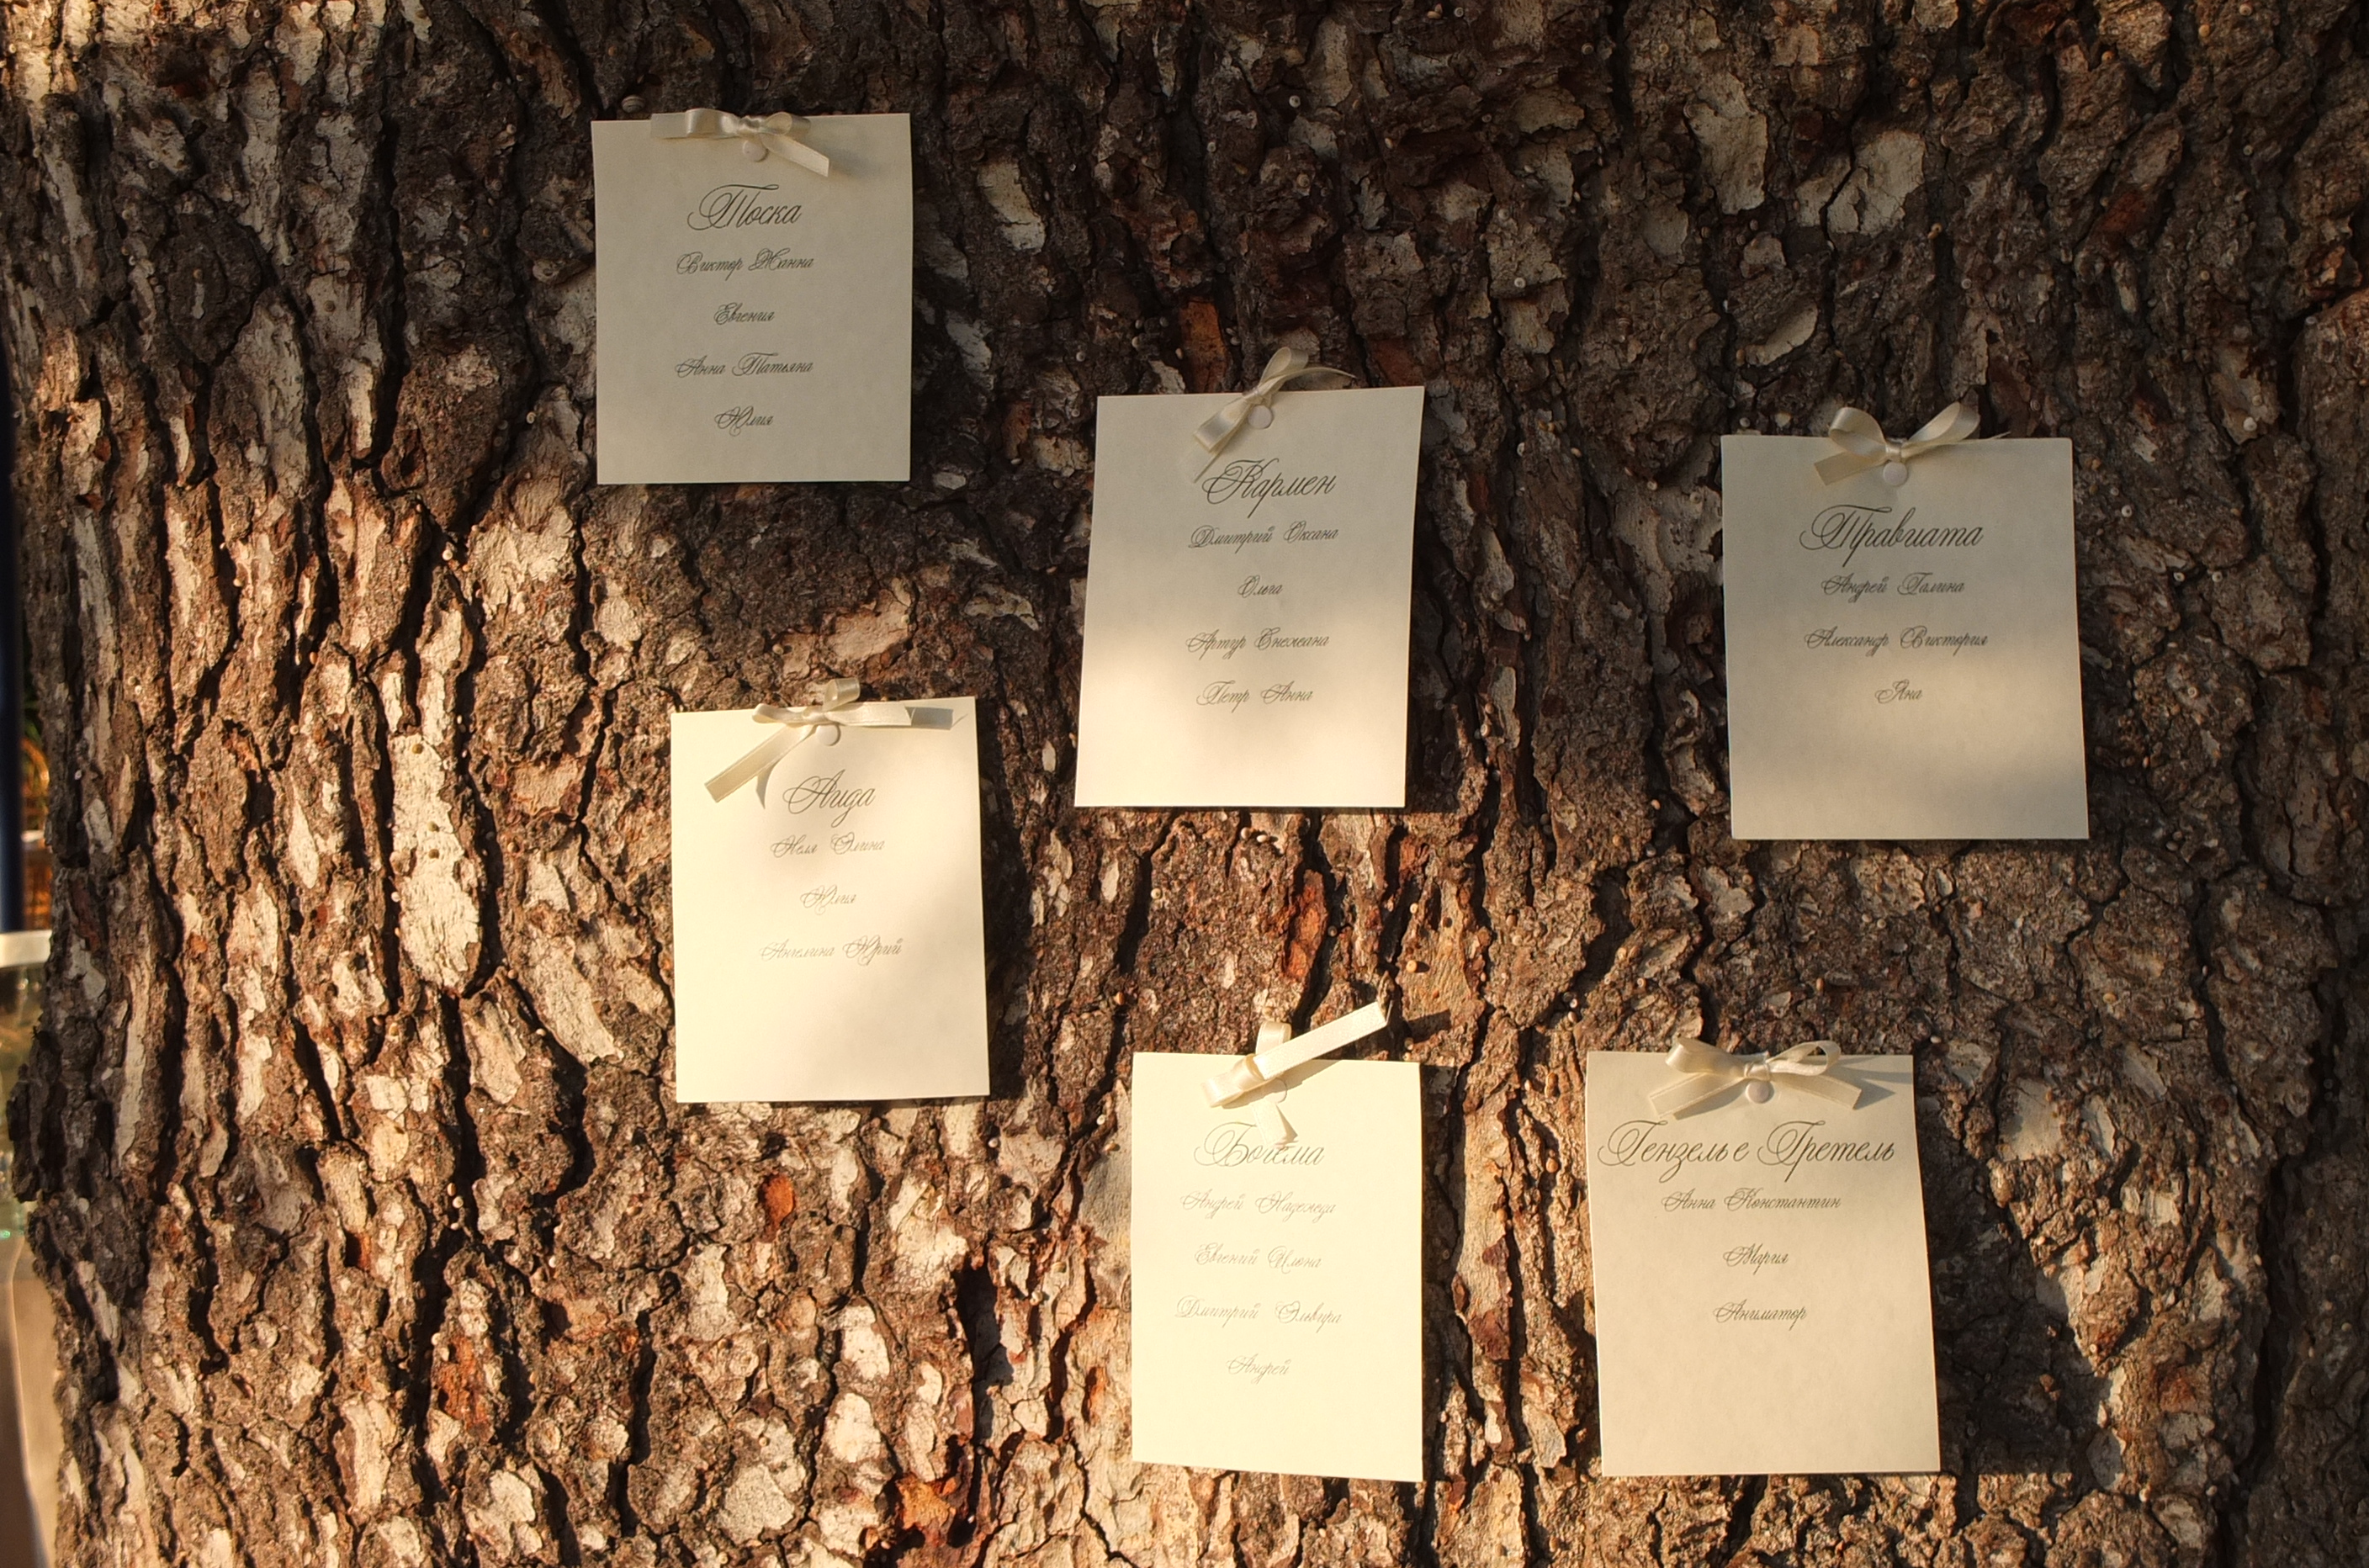 Тоска
Виктор Жанна
Евгения
Анна Татьяна
Юлия
Кармен
Дмитрий Оксана
Ольга
Артур Снежана
Петр Анна
Травиата
Андрей Галина
Александр Виктория
Яна
Аида
Неля Элина
Юлия
Ангелина Юрий
Богема
Андрей Надежда
Евгений Илона
Дмитрий Эльвира
Андрей
Гензель е Гретель
Анна Константин
Мария
Аниматор